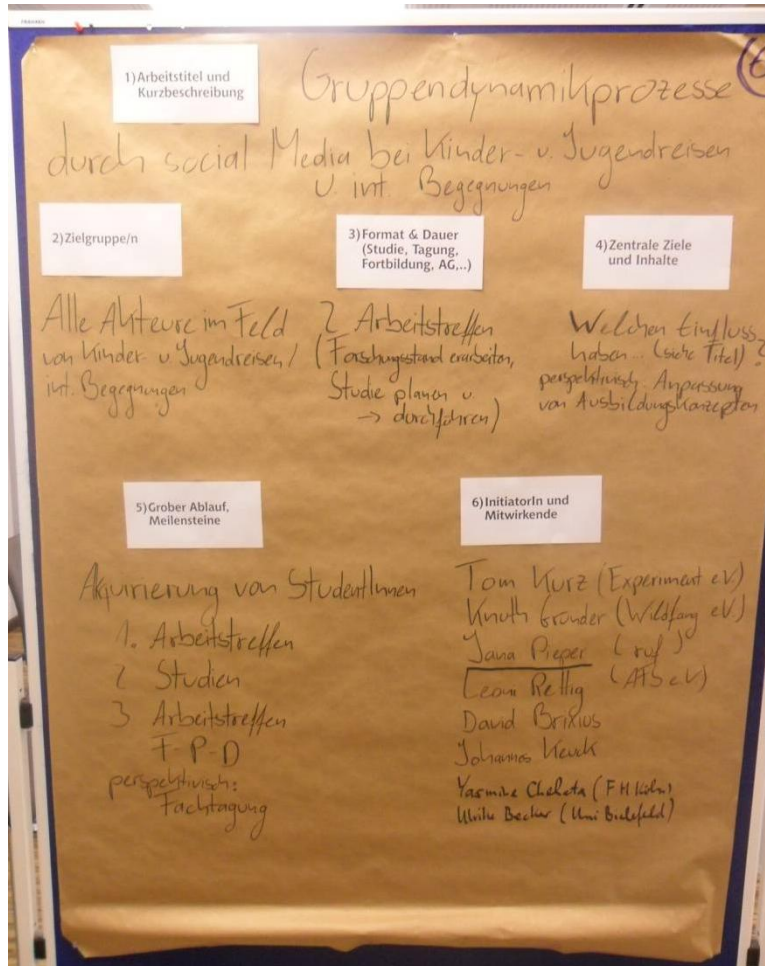 1) Arbeitstitel und
Kurzbeschreibung
Gruppendynamikprozesse
durch social Media bei Kinder- u. Jugendreisen
u. int. Begegnungen
2) Zielgruppe/n
Alle Akteure im Feld
von Kinder- u. Jugendreisen /
int. Begegnungen
3) Format & Dauer
(Studie, Tagung,
Fortbildung, AG,..)
2 Arbeitstreffen
(Forschungsstand erarbeiten,
Studie planen u.
→ durchführen)
4) Zentrale Ziele
und Inhalte
Welchen Einfluss
haben... (siehe Titel)?
perspektivisch Anpassung
von Ausbildungskonzepten
5) Grober Ablauf,
Meilensteine
Akquirierung von StudentInnen
1. Arbeitstreffen
2 Studien
3 Arbeitstreffen
F-P-D
perspektivisch:
Fachtagung
6) InitiatorIn und
Mitwirkende
Tom Kurz (Experiment e.V.)
Knuth Gründer (Wildfang e.V.)
Jana Pieper (ruf)
Leoni Rettig (ATS e.V.)
David Brixius
Johannes
Yasmine Chehata (FH Köln)
Ulrike Becker (Uni Bielefeld)